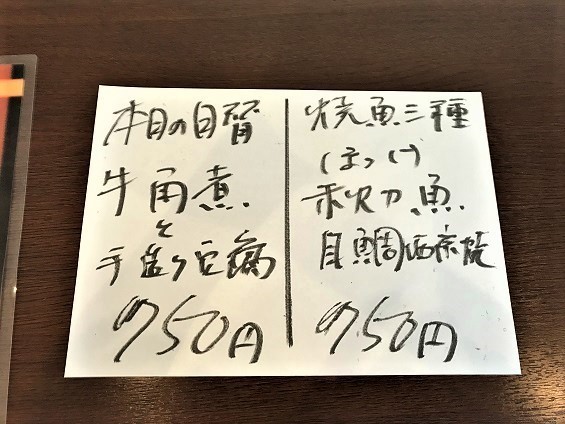 本日の日替
牛角煮
と
手造り豆腐
750円
焼魚三種
ほっけ
秋刀魚
目鯛西京焼
750円